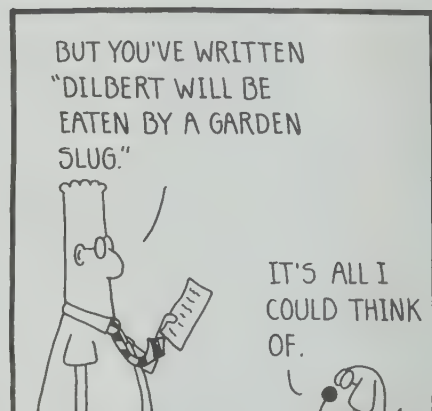 BUT YOU'VE WRITTEN
"DILBERT WILL BE
EATEN BY A GARDEN
SLUG."
IT'S ALL I
COULD THINK
OF.